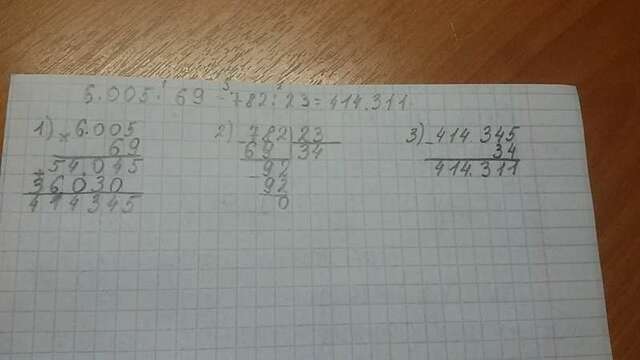 6.005 · 69 - 782 : 23 = 414.311.
1) × 6.005
69
+ 54.045
36030
414345
2) - 782 | 23
69 | 34
92
92
0
3) - 414.345
34
414.311